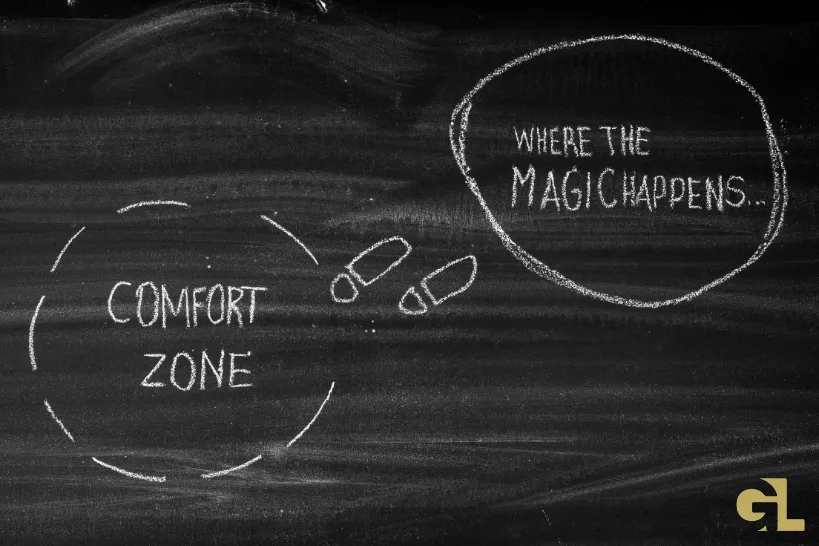 WHERE THE
MAGIC HAPPENS...
COMFORT
ZONE
GL